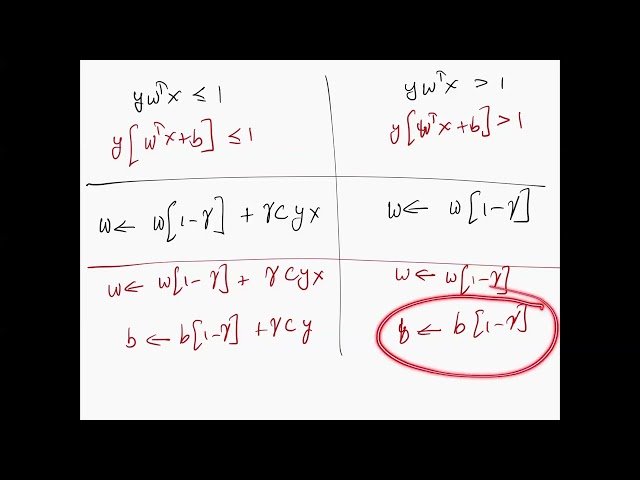 ywᵀx ≤ 1
ywᵀx > 1
y[wᵀx+b] ≤ 1
y[wᵀx+b] > 1
w← w[1-γ] + γcyx
w← w[1-γ]
w← w[1-γ] + γcyx
w← w[1-γ]
b ← b[1-γ] + γcy
b ← b[1-γ]